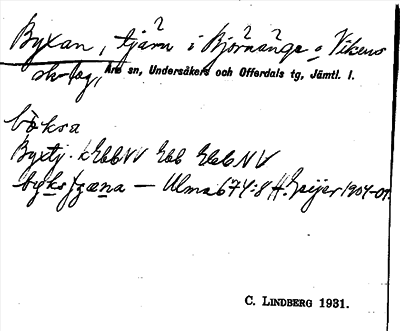 Byxan, tjärn i Björnänge o Vikens
skog, Åre sn, Undersåkers och Offerdals tg, Jämtl. l.
böksa
Byxtj.
byksȷæna — Ulma 674:8 H. Geijer 1904-07.
C. LINDBERG 1931.